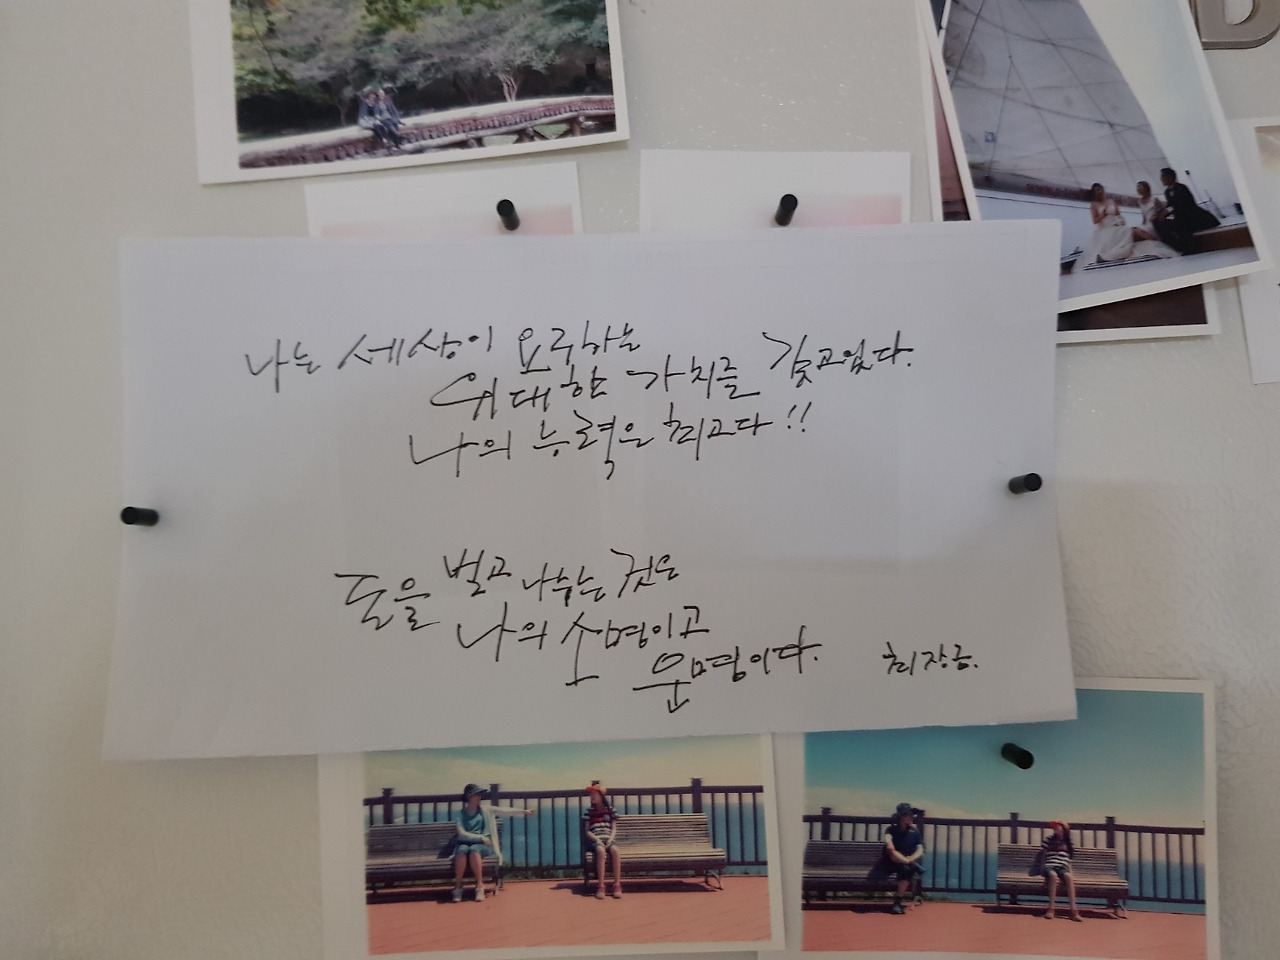 나는 세상이 요구하는
위대한 가치를 갖고있다.
나의 능력은 최고다!!
돈을 벌고 나누는 것은
나의 소명이고
운명이다. 최장금.